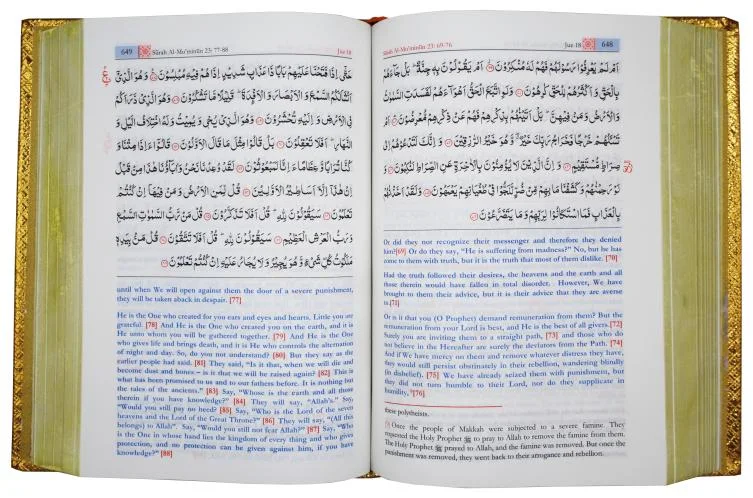 Sūrah Al-Mu'minūn 23: 69-76 Juz 18 648
اَمْ لَمْ يَعْرِفُوْا رَسُوْلَهُمْ فَهُمْ لَهٗ مُنْكِرُوْنَ اَمْ يَقُوْلُوْنَ بِهٖ جِنَّةٌ ؕ بَلْ جَآءَهُمْ
بِالْحَقِّ وَاَكْثَرُهُمْ لِلْحَقِّ كٰرِهُوْنَ وَلَوِ اتَّبَعَ الْحَقُّ اَهْوَآءَهُمْ لَفَسَدَتِ السَّمٰوٰتُ
وَالْاَرْضُ وَمَنْ فِيْهِنَّ ؕ بَلْ اَتَيْنٰهُمْ بِذِكْرِهِمْ فَهُمْ عَنْ ذِكْرِهِمْ مُّعْرِضُوْنَ اَمْ
تَسْـَٔلُهُمْ خَرْجًا فَخَرَاجُ رَبِّكَ خَيْرٌ وَّهُوَ خَيْرُ الرّٰزِقِيْنَ وَاِنَّكَ لَتَدْعُوْهُمْ اِلٰى
صِرَاطٍ مُّسْتَقِيْمٍ وَاِنَّ الَّذِيْنَ لَا يُؤْمِنُوْنَ بِالْاٰخِرَةِ عَنِ الصِّرَاطِ لَنٰكِبُوْنَ وَ
لَوْ رَحِمْنٰهُمْ وَكَشَفْنَا مَا بِهِمْ مِّنْ ضُرٍّ لَّلَجُّوْا فِيْ طُغْيَانِهِمْ يَعْمَهُوْنَ وَلَقَدْ اَخَذْنٰهُمْ
بِالْعَذَابِ فَمَا اسْتَكَانُوْا لِرَبِّهِمْ وَمَا يَتَضَرَّعُوْنَ
Or did they not recognize their messenger and therefore they denied
him?[69] Or do they say, "He is suffering from madness?" No, but he has
come to them with truth, but it is the truth that most of them dislike. [70]
Had the truth followed their desires, the heavens and the earth and all
those therein would have fallen in total disorder. However, We have
brought to them their advice, but it is their advice that they are averse
to.[71]
Or is it that you (O Prophet) demand remuneration from them? But the
remuneration from your Lord is best, and He is the best of all givers.[72]
Surely you are inviting them to a straight path, [73] and those who do
not believe in the Hereafter are surely the deviators from the Path. [74]
And if We have mercy on them and remove whatever distress they have,
they would still persist obstinately in their rebellion, wandering blindly
(in disbelief). [75] We have already seized them with punishment, but
they did not turn humble to their Lord, nor do they supplicate in
humility, [76]
these polytheists.
Once the people of Makkah were subjected to a severe famine. They
requested the Holy Prophet ﷺ to pray to Allah to remove the famine from them.
The Holy Prophet ﷺ prayed to Allah, and the famine was removed. But once the
punishment was removed, they went back to their arrogance and rebellion.
649 Sūrah Al-Mu'minūn 23: 77-88 Juz 18
حَتّٰۤى اِذَا فَتَحْنَا عَلَيْهِمْ بَابًا ذَا عَذَابٍ شَدِيْدٍ اِذَا هُمْ فِيْهِ مُبْلِسُوْنَ وَهُوَ الَّذِيْۤ
اَنْشَاَ لَكُمُ السَّمْعَ وَالْاَبْصَارَ وَالْاَفْـِٕدَةَ ؕ قَلِيْلًا مَّا تَشْكُرُوْنَ وَهُوَ الَّذِيْ ذَرَاَكُمْ
فِي الْاَرْضِ وَ اِلَيْهِ تُحْشَرُوْنَ وَهُوَ الَّذِيْ يُحْيٖ وَيُمِيْتُ وَلَهُ اخْتِلَافُ الَّيْلِ وَ
النَّهَارِ ؕ اَفَلَا تَعْقِلُوْنَ بَلْ قَالُوْا مِثْلَ مَا قَالَ الْاَوَّلُوْنَ قَالُوْۤا ءَاِذَا مِتْنَا وَ
كُنَّا تُرَابًا وَّ عِظَامًا ءَاِنَّا لَمَبْعُوْثُوْنَ لَقَدْ وُعِدْنَا نَحْنُ وَاٰبَآؤُنَا هٰذَا مِنْ قَبْلُ
اِنْ هٰذَاۤ اِلَّاۤ اَسَاطِيْرُ الْاَوَّلِيْنَ قُلْ لِّمَنِ الْاَرْضُ وَ مَنْ فِيْهَاۤ اِنْ كُنْتُمْ
تَعْلَمُوْنَ سَيَقُوْلُوْنَ لِلّٰهِ ؕ قُلْ اَفَلَا تَذَكَّرُوْنَ قُلْ مَنْ رَّبُّ السَّمٰوٰتِ السَّبْعِ
وَ رَبُّ الْعَرْشِ الْعَظِيْمِ سَيَقُوْلُوْنَ لِلّٰهِ ؕ قُلْ اَفَلَا تَتَّقُوْنَ قُلْ مَنْۢ بِيَدِهٖ
مَلَكُوْتُ كُلِّ شَيْءٍ وَّ هُوَ يُجِيْرُ وَلَا يُجَارُ عَلَيْهِ اِنْ كُنْتُمْ تَعْلَمُوْنَ
until when We will open against them the door of a severe punishment,
they will be taken aback in despair. [77]
He is the One who created for you ears and eyes and hearts. Little you are
grateful. [78] And He is the One who created you on the earth, and it is
He unto whom you will be gathered together. [79] And He is the One
who gives life and brings death, and it is He who controls the alternation
of night and day. So, do you not understand? [80] But they say as the
earlier people had said. [81] They said, "Is it that, when we will die and
become dust and bones – is it that we will be raised again? [82] This is
what has been promised to us and to our fathers before. It is nothing but
the tales of the ancients." [83] Say, "Whose is the earth and all those
therein if you have knowledge?" [84] They will say, "Allah's." Say,
"Would you still pay no heed? [85] Say, "Who is the Lord of the seven
heavens and the Lord of the Great Throne?" [86] They will say, "(All this
belongs) to Allah". Say, "Would you still not fear Allah?" [87] Say, "Who
is the One in whose hand lies the kingdom of every thing and who gives
protection, and no protection can be given against him, if you have
knowledge?" [88]